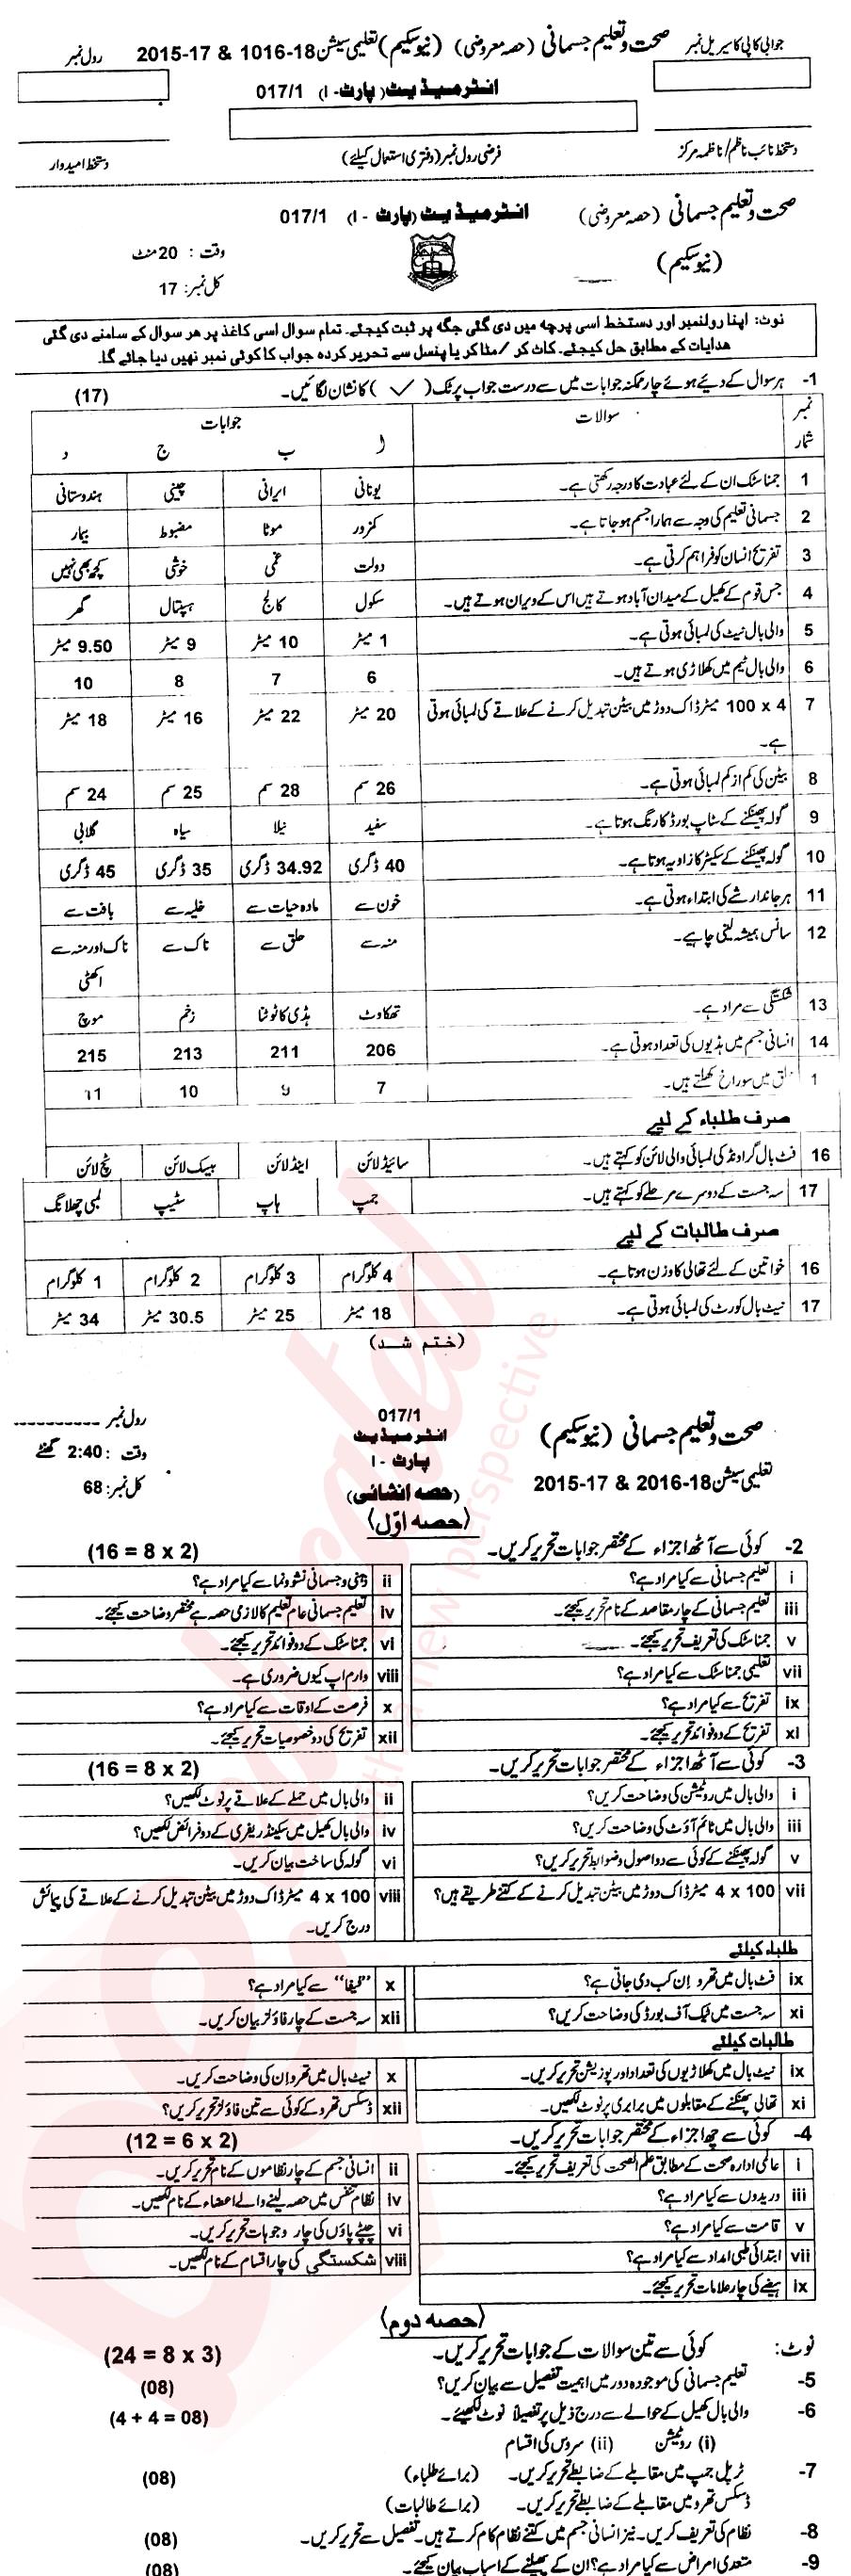 جوابی کاپی کا سیریل نمبر صحت و تعلیم جسمانی (حصہ معروضی) (نیو سکیم) تعلیمی سیشن 18-1016 & 17-2015 رول نمبر
انٹرمیڈیٹ (پارٹ - I) 017/1
دستخط نائب ناظم/ناظمہ مرکز فرضی رول نمبر (دفتری استعمال کیلئے) دستخط امیدوار
صحت و تعلیم جسمانی (حصہ معروضی) انٹرمیڈیٹ (پارٹ - I) 017/1
وقت : 20 منٹ
(نیو سکیم)
کل نمبر: 17
نوٹ: اپنا رولنمبر اور دستخط اسی پرچہ میں دی گئی جگہ پر ثبت کیجئے۔ تمام سوال اسی کاغذ پر هر سوال کے سامنے دی گئی
هدایات کے مطابق حل کیجئے۔ کاٹ کر /مٹا کر یا پنسل سے تحریر کردہ جواب کا کوئی نمبر نہیں دیا جائے گا۔
1- ہر سوال کے دیئے ہوئے چار ممکنہ جوابات میں سے درست جواب پر ٹِک ( ✓ ) کا نشان لگائیں۔ (17)
نمبر شمار سوالات جوابات
ا ب ج د
1 جمناسٹک ان کے لئے عبادت کا درجہ رکھتی ہے۔ یونانی ایرانی چینی ہندوستانی
2 جسمانی تعلیم کی وجہ سے ہمارا جسم ہو جاتا ہے۔ کمزور موٹا مضبوط بیمار
3 تفریح انسان کو فراہم کرتی ہے۔ دولت غمی خوشی کچھ بھی نہیں
4 جس قوم کے کھیل کے میدان آباد ہوتے ہیں اس کے ویران ہوتے ہیں۔ سکول کالج ہسپتال گھر
5 والی بال نیٹ کی لمبائی ہوتی ہے۔ 1 میٹر 10 میٹر 9 میٹر 9.50 میٹر
6 والی بال ٹیم میں کھلاڑی ہوتے ہیں۔ 6 7 8 10
7 4 x 100 میٹر ڈاک دوڑ میں بیٹن تبدیل کرنے کے علاقے کی لمبائی ہوتی 20 میٹر 22 میٹر 16 میٹر 18 میٹر
ہے۔
8 بیٹن کی کم از کم لمبائی ہوتی ہے۔ 26 سم 28 سم 25 سم 24 سم
9 گولہ پھینکنے کے سٹاپ بورڈ کا رنگ ہوتا ہے۔ سفید نیلا سیاہ گلابی
10 گولہ پھینکنے کے سیکٹر کا زاویہ ہوتا ہے۔ 40 ڈگری 34.92 ڈگری 35 ڈگری 45 ڈگری
11 ہر جاندار شے کی ابتداء ہوتی ہے۔ خون سے مادہ حیات سے خلیہ سے بافت سے
12 سانس ہمیشہ لینی چاہیے۔ منہ سے حلق سے ناک سے ناک اور منہ سے
اکٹھی
13 شکستگی سے مراد ہے۔ تھکاوٹ ہڈی کا ٹوٹنا زخم موچ
14 انسانی جسم میں ہڈیوں کی تعداد ہوتی ہے۔ 206 211 213 215
1 حلق میں سوراخ کھلتے ہیں۔ 7 9 10 11
صرف طلباء کے لیے
16 فٹ بال گراؤنڈ کی لمبائی والی لائن کو کہتے ہیں۔ سائیڈ لائن اینڈ لائن بیک لائن ٹچ لائن
17 سہ جست کے دوسرے مرحلے کو کہتے ہیں۔ جمپ ہاپ سٹیپ لمبی چھلانگ
صرف طالبات کے لیے
16 خواتین کے لئے تھالی کا وزن ہوتا ہے۔ 4 کلوگرام 3 کلوگرام 2 کلوگرام 1 کلوگرام
17 نیٹ بال کورٹ کی لمبائی ہوتی ہے۔ 18 میٹر 25 میٹر 30.5 میٹر 34 میٹر
(ختم شد)
صحت و تعلیم جسمانی (نیو سکیم) 017/1 رول نمبر ----------
انٹرمیڈیٹ
وقت : 2:40 گھنٹے
پارٹ - I
تعلیمی سیشن 18-2016 & 17-2015 (حصہ انشائی) کل نمبر: 68
(حصہ اوّل)
2- کوئی سے آٹھ اجزاء کے مختصر جوابات تحریر کریں۔ (16 = 8 x 2)
i تعلیم جسمانی سے کیا مراد ہے؟ ii ذہنی و جسمانی نشوونما سے کیا مراد ہے؟
iii تعلیم جسمانی کے چار مقاصد کے نام تحریر کیجئے۔ iv تعلیم جسمانی عام تعلیم کا لازمی حصہ ہے مختصر وضاحت کیجئے۔
v جمناسٹک کی تعریف تحریر کیجئے۔ vi جمناسٹک کے دو فوائد تحریر کیجئے۔
vii تعلیمی جمناسٹک سے کیا مراد ہے؟ viii وارم اپ کیوں ضروری ہے۔
ix تفریح سے کیا مراد ہے؟ x فرصت کے اوقات سے کیا مراد ہے؟
xi تفریح کے دو فوائد تحریر کیجئے۔ xii تفریح کی دو خصوصیات تحریر کیجئے۔
3- کوئی سے آٹھ اجزاء کے مختصر جوابات تحریر کریں۔ (16 = 8 x 2)
i والی بال میں روٹیشن کی وضاحت کریں؟ ii والی بال میں حملے کے علاقے پر نوٹ لکھیں؟
iii والی بال میں ٹائم آؤٹ کی وضاحت کریں؟ iv والی بال کھیل میں سیکنڈ ریفری کے دو فرائض لکھیں؟
v گولہ پھینکنے کے کوئی سے دو اصول و ضوابط تحریر کریں؟ vi گولہ کی ساخت بیان کریں۔
vii 4 x 100 میٹر ڈاک دوڑ میں بیٹن تبدیل کرنے کے کتنے طریقے ہیں؟ viii 4 x 100 میٹر ڈاک دوڑ میں بیٹن تبدیل کرنے کے علاقے کی پیمائش
درج کریں۔
طلباء کیلئے
ix فٹ بال میں تھرو اِن کب دی جاتی ہے؟ x "فیفا" سے کیا مراد ہے؟
xi سہ جست میں ٹیک آف بورڈ کی وضاحت کریں؟ xii سہ جست کے چار فاؤلز بیان کریں۔
طالبات کیلئے
ix نیٹ بال میں کھلاڑیوں کی تعداد اور پوزیشن تحریر کریں۔ x نیٹ بال میں تھرو اِن کی وضاحت کریں۔
xi تھالی پھینکنے کے مقابلوں میں برابری پر نوٹ لکھیں۔ xii ڈسکس تھرو کے کوئی سے تین فاؤلز تحریر کریں؟
4- کوئی سے چھ اجزاء کے مختصر جوابات تحریر کریں۔ (12 = 6 x 2)
i عالمی ادارہ صحت کے مطابق علم الصحت کی تعریف تحریر کیجئے۔ ii انسانی جسم کے چار نظاموں کے نام تحریر کریں۔
iii وریدوں سے کیا مراد ہے؟ iv نظام تنفس میں حصہ لینے والے اعضاء کے نام لکھیں۔
v قامت سے کیا مراد ہے؟ vi چپٹے پاؤں کی چار وجوہات تحریر کریں۔
vii ابتدائی طبی امداد سے کیا مراد ہے؟ viii شکستگی کی چار اقسام کے نام لکھیں۔
ix ہیضے کی چار علامات تحریر کیجئے۔
(حصہ دوم)
نوٹ: کوئی سے تین سوالات کے جوابات تحریر کریں۔ (24 = 8 x 3)
5- تعلیم جسمانی کی موجودہ دور میں اہمیت تفصیل سے بیان کریں؟ (08)
6- والی بال کھیل کے حوالے سے درج ذیل پر تفصیلاً نوٹ لکھیئے۔ (4 + 4 = 08)
(i) روٹیشن (ii) سروس کی اقسام
7- ٹرپل جمپ میں مقابلے کے ضابطے تحریر کریں۔ (برائے طلباء) (08)
ڈسکس تھرو میں مقابلے کے ضابطے تحریر کریں۔ (برائے طالبات)
8- نظام کی تعریف کریں۔ نیز انسانی جسم میں کتنے نظام کام کرتے ہیں۔ تفصیل سے تحریر کریں۔ (08)
9- متعدی امراض سے کیا مراد ہے؟ ان کے پھیلنے کے اسباب بیان کیجئے۔ (08)